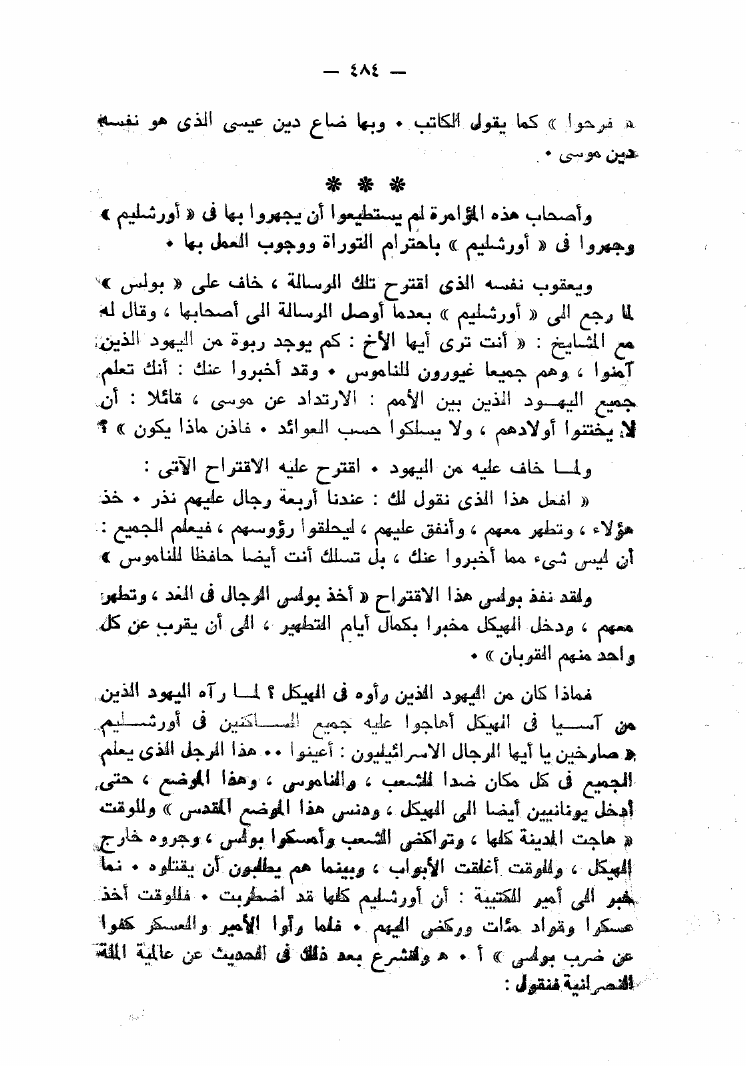 — ٤٨٤ —
« فرحوا » كما يقول الكاتب • وبها ضاع دين عيسى الذى هو نفسه
دين موسى •
* * *
وأصحاب هذه المؤامرة لم يستطيعوا أن يجهروا بها فى « أورشليم »
وجهروا فى « أورشليم » باحترام التوراة ووجوب العمل بها •
ويعقوب نفسه الذى اقترح تلك الرسالة ، خاف على « بولس »
لما رجع الى « أورشليم » بعدما أوصل الرسالة الى أصحابها ، وقال له
مع المشايخ : « أنت ترى أيها الأخ : كم يوجد ربوة من اليهود الذين
آمنوا ، وهم جميعا غيورون للناموس • وقد أخبروا عنك : أنك تعلم
جميع اليهـود الذين بين الأمم : الارتداد عن موسى ، قائلا : أن
لا يختنوا أولادهم ، ولا يسلكوا حسب العوائد • فاذن ماذا يكون » ؟
ولـما خاف عليه من اليهود • اقترح عليه الاقتراح الآتى :
« افعل هذا الذى نقول لك : عندنا أربعة رجال عليهم نذر • خذ
هؤلاء ، وتطهر معهم ، وأنفق عليهم ، ليحلقوا رؤوسهم ، فيعلم الجميع :
أن ليس شىء مما أخبروا عنك ، بل تسلك أنت أيضا حافظا للناموس »
ولقد نفذ بولس هذا الاقتراح « أخذ بولس الرجال فى الغد ، وتطهر
معهم ، ودخل الهيكل مخبرا بكمال أيام التطهير ، الى أن يقرب عن كل
واحد منهم القربان » •
فماذا كان من اليهود الذين رأوه فى الهيكل ؟ لـما رآه اليهود الذين
من آسـيا فى الهيكل أهاجوا عليه جميع السـاكنين فى أورشـليم
« صارخين يا أيها الرجال الاسرائيليون : أعينوا •• هذا الرجل الذى يعلم
الجميع فى كل مكان ضدا للشعب ، والناموس ، وهذا الموضع ، حتى
أدخل يونانيين أيضا الى الهيكل ، ودنس هذا الموضع المقدس » وللوقت
« هاجت المدينة كلها ، وتراكض الشعب وأمسكوا بولس ، وجروه خارج
الهيكل ، وللوقت أغلقت الأبواب ، وبينما هم يطلبون أن يقتلوه • نما
خبر الى أمير الكتيبة : أن أورشليم كلها قد اضطربت • فللوقت أخذ
عسكرا وقواد مئات وركض اليهم • فلما رأوا الأمير والعسكر كفوا
عن ضرب بولس » أ • هـ ولنشرع بعد ذلك فى الحديث عن عالمية الملة
النصرانية فنقول :